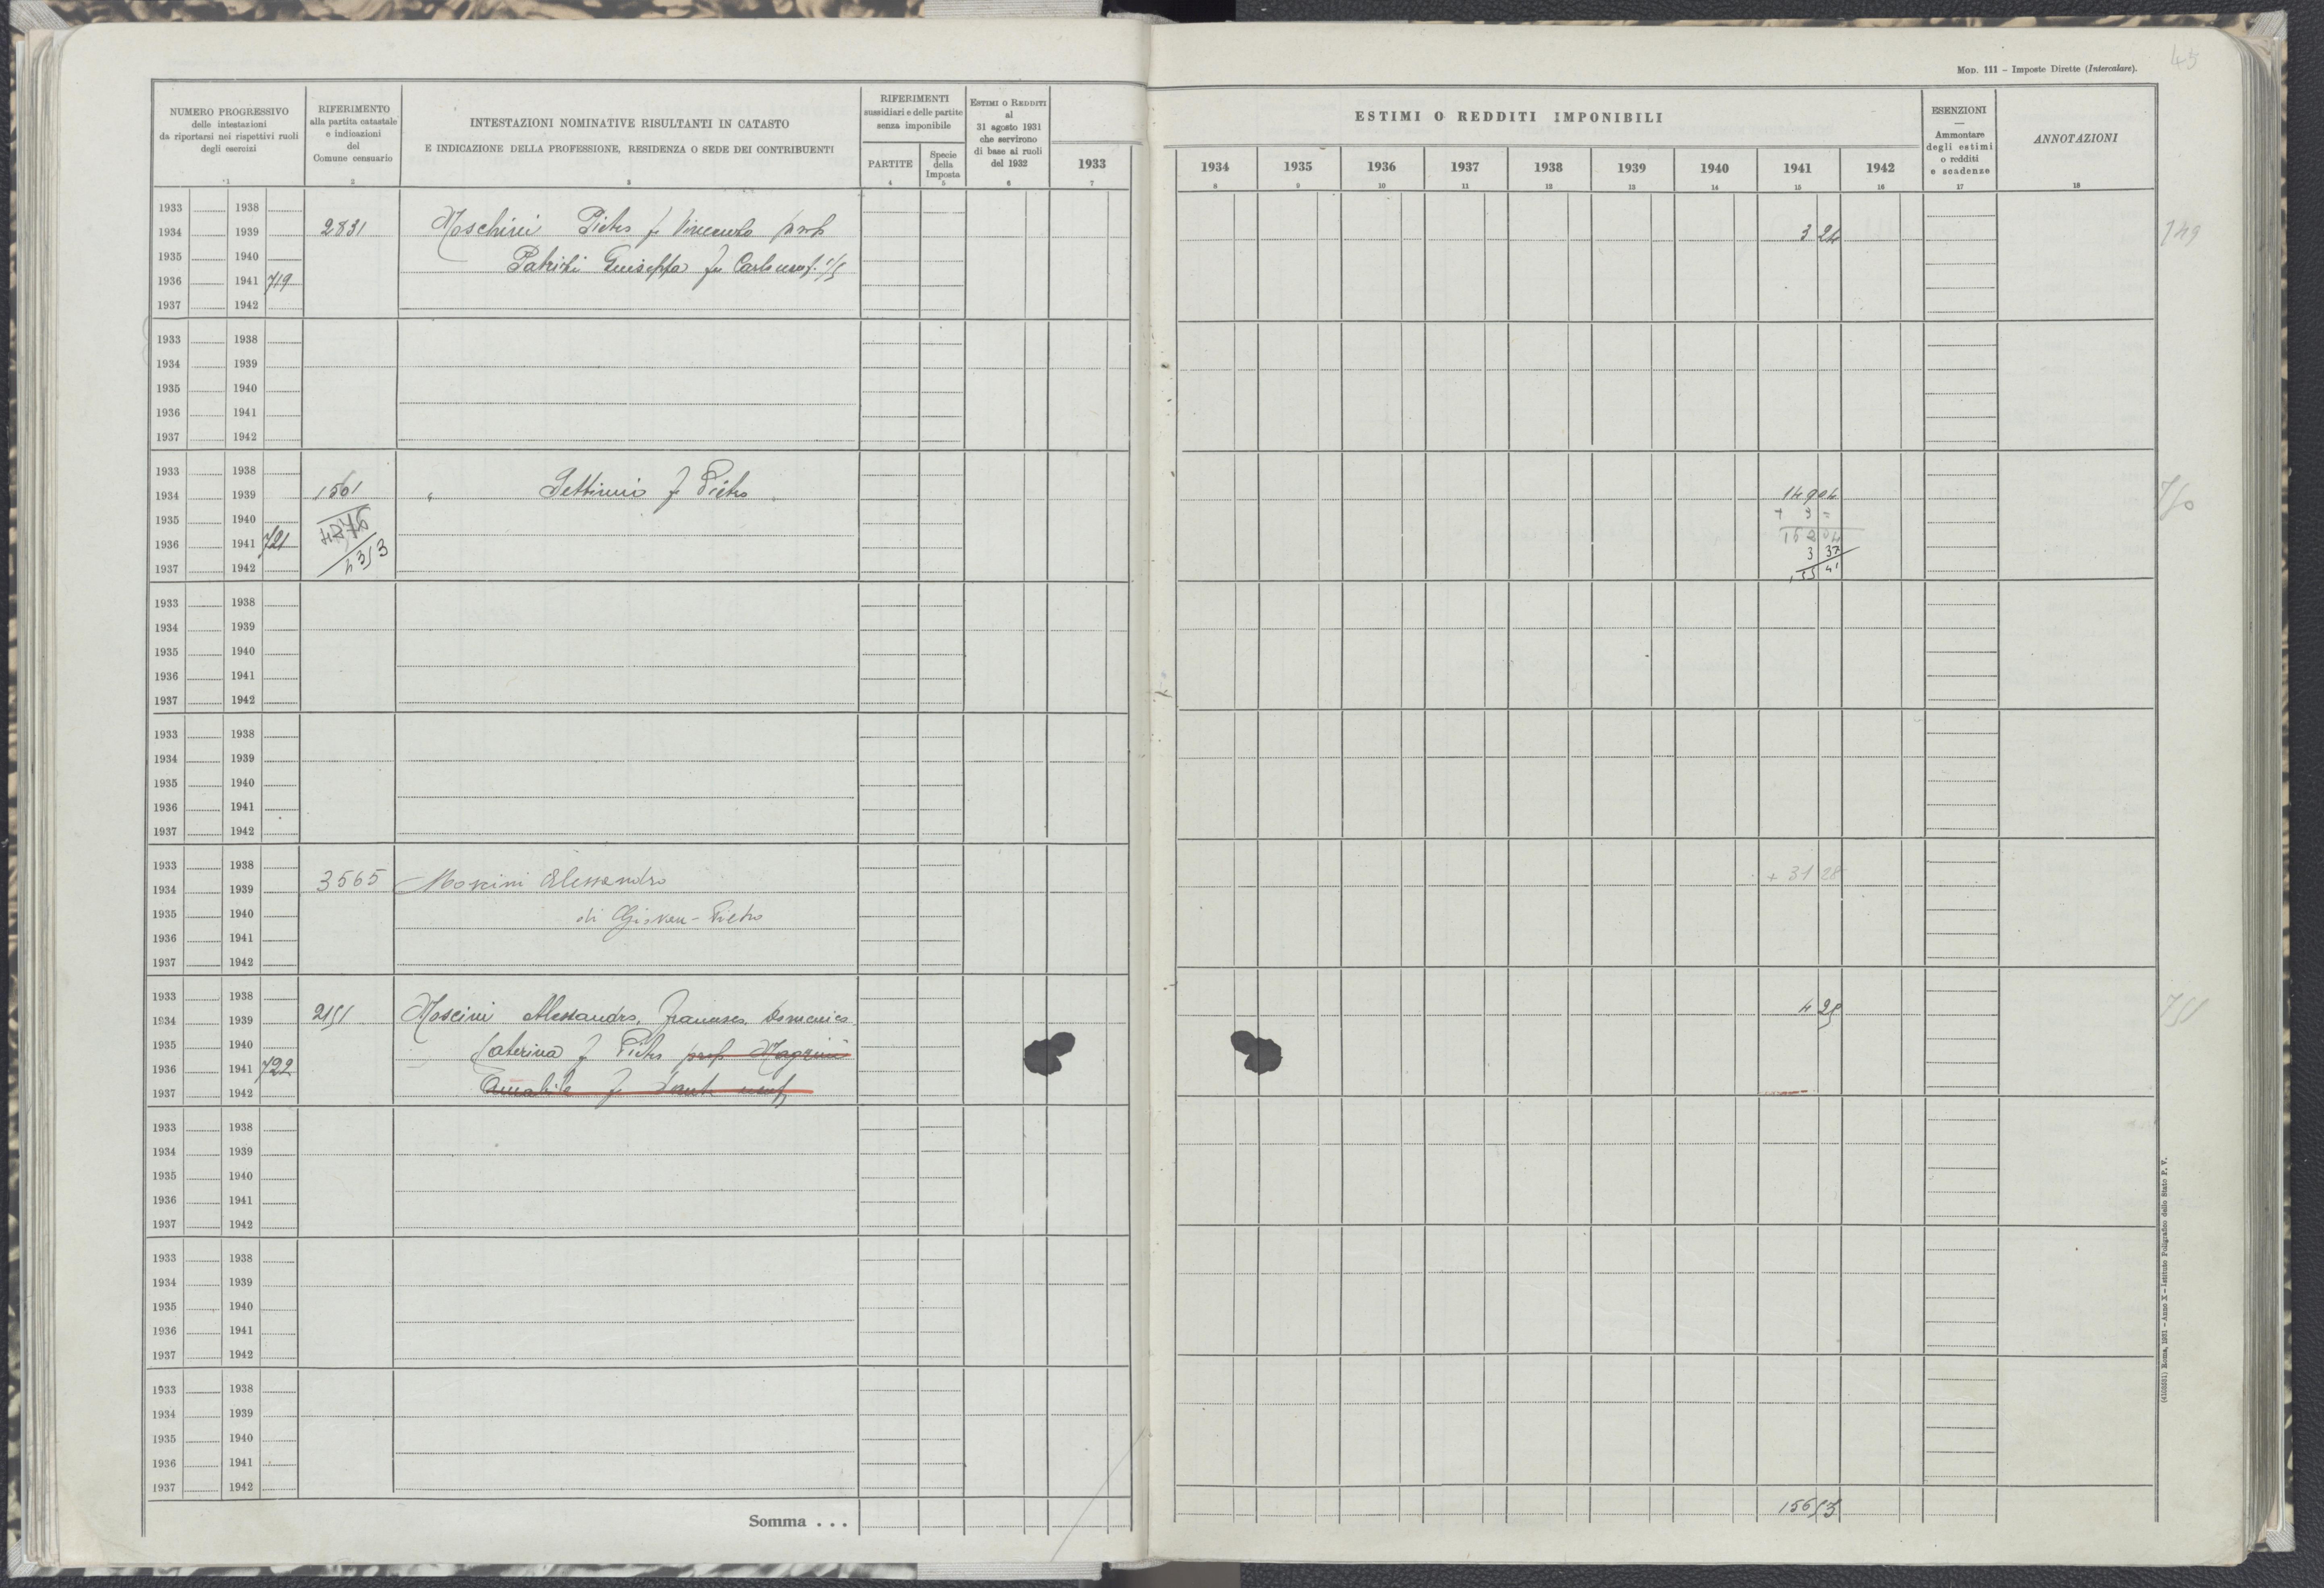 45
MOD. 111 – Imposte Dirette (Intercalare).
NUMERO PROGRESSIVO
delle intestazioni
da riportarsi nei rispettivi ruoli
degli esercizi
1
RIFERIMENTO
alla partita catastale
e indicazioni
del
Comune censuario
2
INTESTAZIONI NOMINATIVE RISULTANTI IN CATASTO
E INDICAZIONE DELLA PROFESSIONE, RESIDENZA O SEDE DEI CONTRIBUENTI
3
RIFERIMENTI
sussidiari e delle partite
senza imponibile
PARTITE
4
Specie
della
Imposta
5
ESTIMI O REDDITI
al
31 agosto 1931
che servirono
di base ai ruoli
del 1932
6
1933
7
ESTIMI O REDDITI IMPONIBILI
1934 1935 1936 1937 1938 1939 1940 1941 1942
8 9 10 11 12 13 14 15 16
ESENZIONI
—
Ammontare
degli estimi
o redditi
e scadenze
17
ANNOTAZIONI
18
1933 1938
1934 1939 2831 Moschini Pietro f Vincenzo prop 3 24 749
1935 1940 Patrizi Giuseppa fu Carlo usuf. 1/5
1936 1941 719
1937 1942
1933 1938
1934 1939
1935 1940
1936 1941
1937 1942
1933 1938
1934 1939 1501 " Settimio f Pietro 149 04 750
1935 1940 4876 + 3 =
1936 1941 721 152 04
1937 1942 4313 3 37
155 41
1933 1938
1934 1939
1935 1940
1936 1941
1937 1942
1933 1938
1934 1939
1935 1940
1936 1941
1937 1942
1933 1938
1934 1939 3565 Moscini Alessandro + 31 28
1935 1940 di Giovan-Pietro
1936 1941
1937 1942
1933 1938
1934 1939 2151 Moscini Alessandro, Francesco, Domenico 4 25 751
1935 1940 Caterina f Pietro prop Magrini
1936 1941 722
1937 1942 Amabile f Sante usuf
1933 1938
1934 1939
1935 1940
1936 1941
1937 1942
1933 1938
1934 1939
1935 1940
1936 1941
1937 1942
1933 1938
1934 1939
1935 1940
1936 1941
1937 1942
Somma . . . 156 53
(4103581) Roma, 1931 – Anno X – Istituto Poligrafico dello Stato P. V.